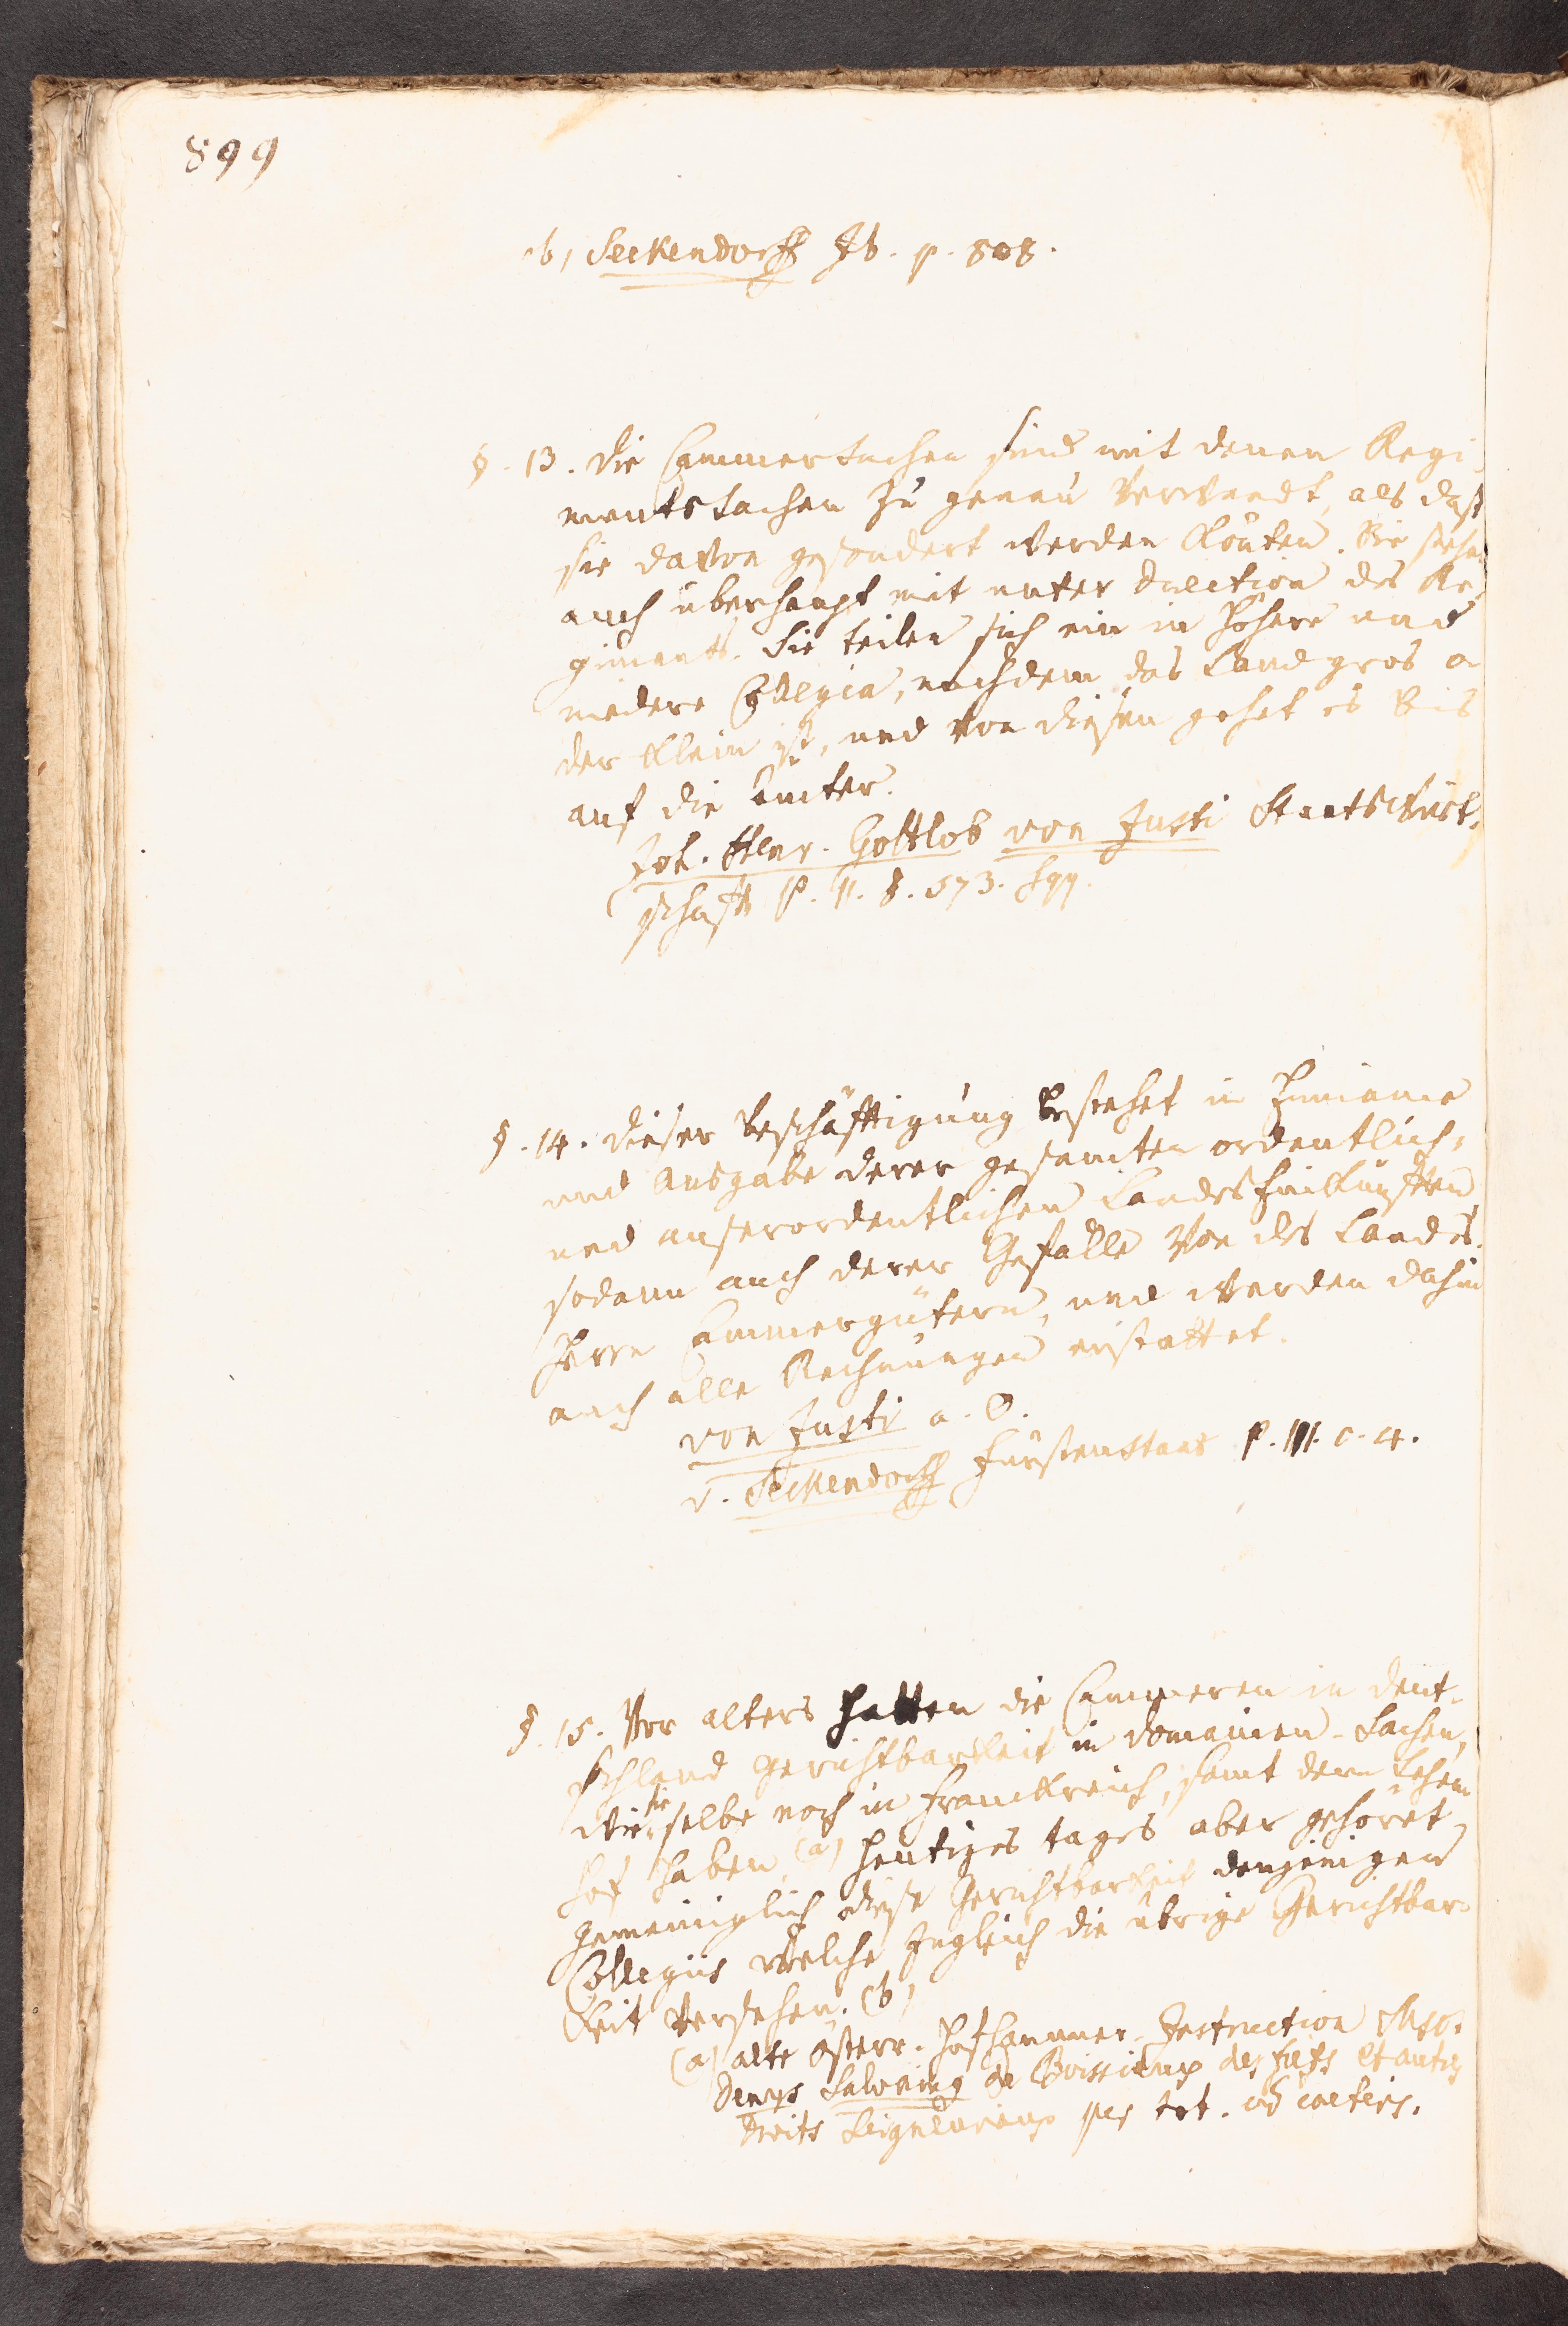 899
(b) Seckendorff Ib. p. 808.
§. 13. die Cammersachen sind mit denen Regi-
mentssachen zu genau verwandt, als daß
sie davon gesondert werden könten. Sie stehen
auch überhaupt mit unter direction des Re-
giments. Sie teilen sich ein in höhere und
niedere Collegia, nachdem das Land gros o-
der klein ist, und von diesen gehet es bis
auf die Ämter.
Joh. Henr. Gottlob von Justi Staatswirt-
schaft P. II. §. 573. sqq.
§. 14. dieser Beschäfftigung bestehet in Einname
und Ausgabe derer gesamten ordentlich-
und auserordentlichen Landes Einkünfften
sodann auch derer Gefälle von des Landes-
herrn Cammergütern, und werden dahin
auch alle Rechnungen erstattet.
von Justi a. O.
v. Seckendorff Fürstenstaat P. III. c. 4.
§. 15. Vor alters hatten die Cammeren in deut-
schland gerichtbarkeit in domainen-Sachen,
wie sie selbe noch in Franckreich, samt dem Lehen
hof haben, (a) heutiges tages aber gehöret
gemeiniglich diese Gerichtbarkeit denjenigen
Collegiis welche zugleich die übrige Gerichtbar-
keit versehen. (b)
(a) alte österr. Hofkammer-Instruction Msc.
Denys Salvaing de Boissieux des fiefs et autres
droits Seigneuriaux per tot. ad caeteris.